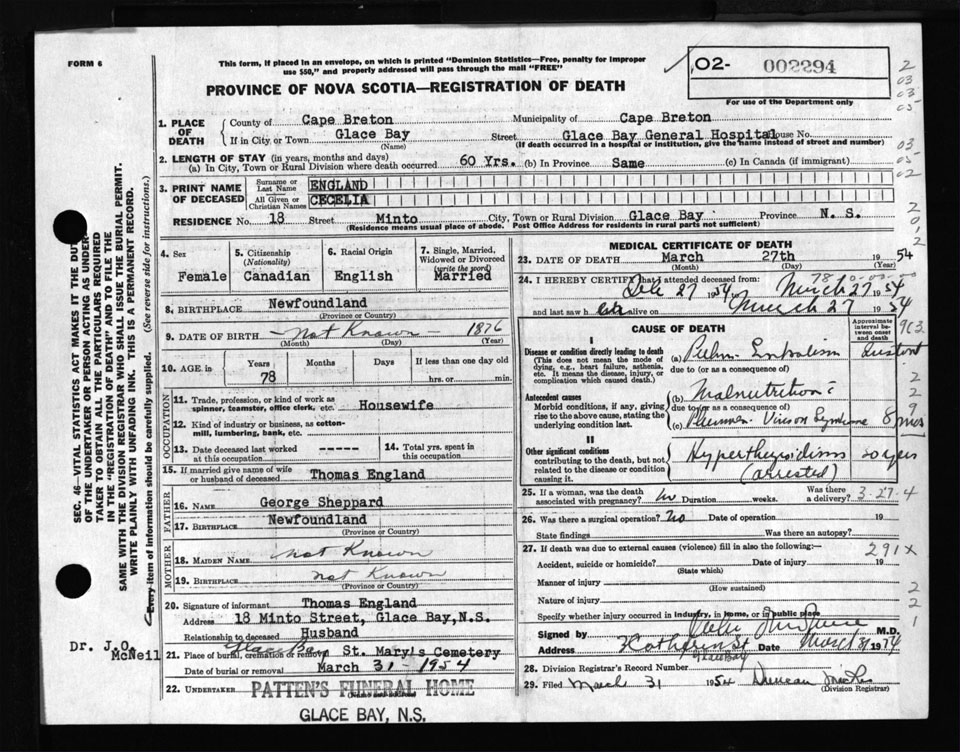 FORM 6
This form, if placed in an envelope, on which is printed "Dominion Statistics—Free, penalty for improper
use $50," and properly addressed will pass through the mail "FREE"
O2- 002294
For use of the Department only
PROVINCE OF NOVA SCOTIA—REGISTRATION OF DEATH
1. PLACE OF DEATH
County of Cape Breton Municipality of Cape Breton
If in City, or Town Glace Bay Street Glace Bay General Hospital House No.
(Name) (If death occurred in a hospital or institution, give the name instead of street and number)
2. LENGTH OF STAY (in years, months and days)
(a) In City, Town or Rural Division where death occurred 60 Yrs. (b) In Province Same (c) In Canada (if immigrant)
3. PRINT NAME OF DECEASED
Surname or Last Name ENGLAND
All Given or Christian Names CECELIA
RESIDENCE No. 18 Street Minto City, Town or Rural Division Glace Bay Province N. S.
(Residence means usual place of abode. Post Office Address for residents in rural parts not sufficient)
4. Sex Female
5. Citizenship (Nationality) Canadian
6. Racial Origin English
7. Single, Married, Widowed or Divorced (write the word) Married
8. BIRTHPLACE Newfoundland
(Province or Country)
9. DATE OF BIRTH Not Known 1876
(Month) (Day) (Year)
10. AGE in Years Months Days If less than one day old
78 hrs. or min.
OCCUPATION
11. Trade, profession, or kind of work as
spinner, teamster, office clerk, etc. Housewife
12. Kind of industry or business, as cotton-
mill, lumbering, bank, etc.
13. Date deceased last worked at this occupation -----
14. Total yrs. spent in this occupation
15. If married give name of wife
or husband of deceased Thomas England
FATHER
16. Name George Sheppard
17. Birthplace Newfoundland
(Province or Country)
MOTHER
18. MAIDEN NAME not Known
19. BIRTHPLACE not Known
(Province or Country)
20. Signature of informant Thomas England
Address 18 Minto Street, Glace Bay,N.S.
Relationship to deceased Husband
21. Place of burial, cremation or removal Glace Bay St. Mary's Cemetery
Date of burial or removal March 31 - 1954
22. UNDERTAKER PATTEN'S FUNERAL HOME
GLACE BAY, N.S.
MEDICAL CERTIFICATE OF DEATH
23. DATE OF DEATH March 27th 19 54
(Month) (Day) (Year)
24. I HEREBY CERTIFY that I attended deceased from:
27 1954 March 27 1954
and last saw h alive on March 27 1954
CAUSE OF DEATH
Approximate interval between onset and death
I
Disease or condition directly leading to death
(This does not mean the mode of
dying, e.g., heart failure, asthenia,
etc. It means the disease, injury, or
complication which caused death.)
(a) Pulm. Embolism
due to (or as a consequence of)
Antecedent causes
Morbid conditions, if any, giving
rise to the above cause, stating the
underlying condition last.
(b) Malnutrition
due to (or as a consequence of)
(c) Plummer-Vinson Syndrome 8 mos
II
Other significant conditions
contributing to the death, but not
related to the disease or condition
causing it.
Hyperthyroidism 20 yrs
(arrested)
25. If a woman, was the death
associated with pregnancy? No Duration weeks. Was there a delivery? 3-27-4
26. Was there a surgical operation? No Date of operation 19
State findings Was there an autopsy?
27. If death was due to external causes (violence) fill in also the following:— 291X
Accident, suicide or homicide? Date of injury 19
(State which)
Manner of injury
(How sustained)
Nature of injury
Specify whether injury occurred in industry, in home, or in public place
Signed by M.D.
Address Date March 31 19
Glace Bay
28. Division Registrar's Record Number
29. Filed March 31 1954 Duncan
(Division Registrar)
SEC. 46—VITAL STATISTICS ACT MAKES IT THE DUTY
OF THE UNDERTAKER OR PERSON ACTING AS UNDER-
TAKER TO OBTAIN ALL THE PARTICULARS REQUIRED
IN THE "REGISTRATION OF DEATH" AND TO FILE THE
SAME WITH THE DIVISION REGISTRAR WHO SHALL ISSUE THE BURIAL PERMIT.
WRITE PLAINLY WITH UNFADING INK. THIS IS A PERMANENT RECORD.
Every item of information should be carefully supplied. (See reverse side for instructions.)
Dr. J.O.
McNeil